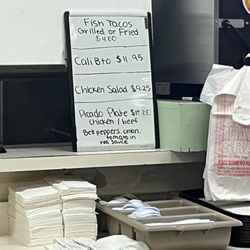 Fish Tacos
Grilled or Fried
$4.00
Cali Bto $11.95
Chicken Salad $9.25
Picado Plate $17.25
Chicken / beef
Bell peppers, onion,
tomato in
red sauce